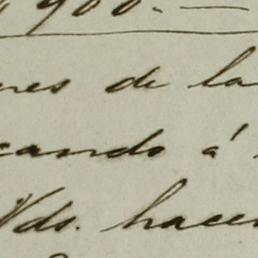 900.—
nes de la
cando á
Vds. hacen